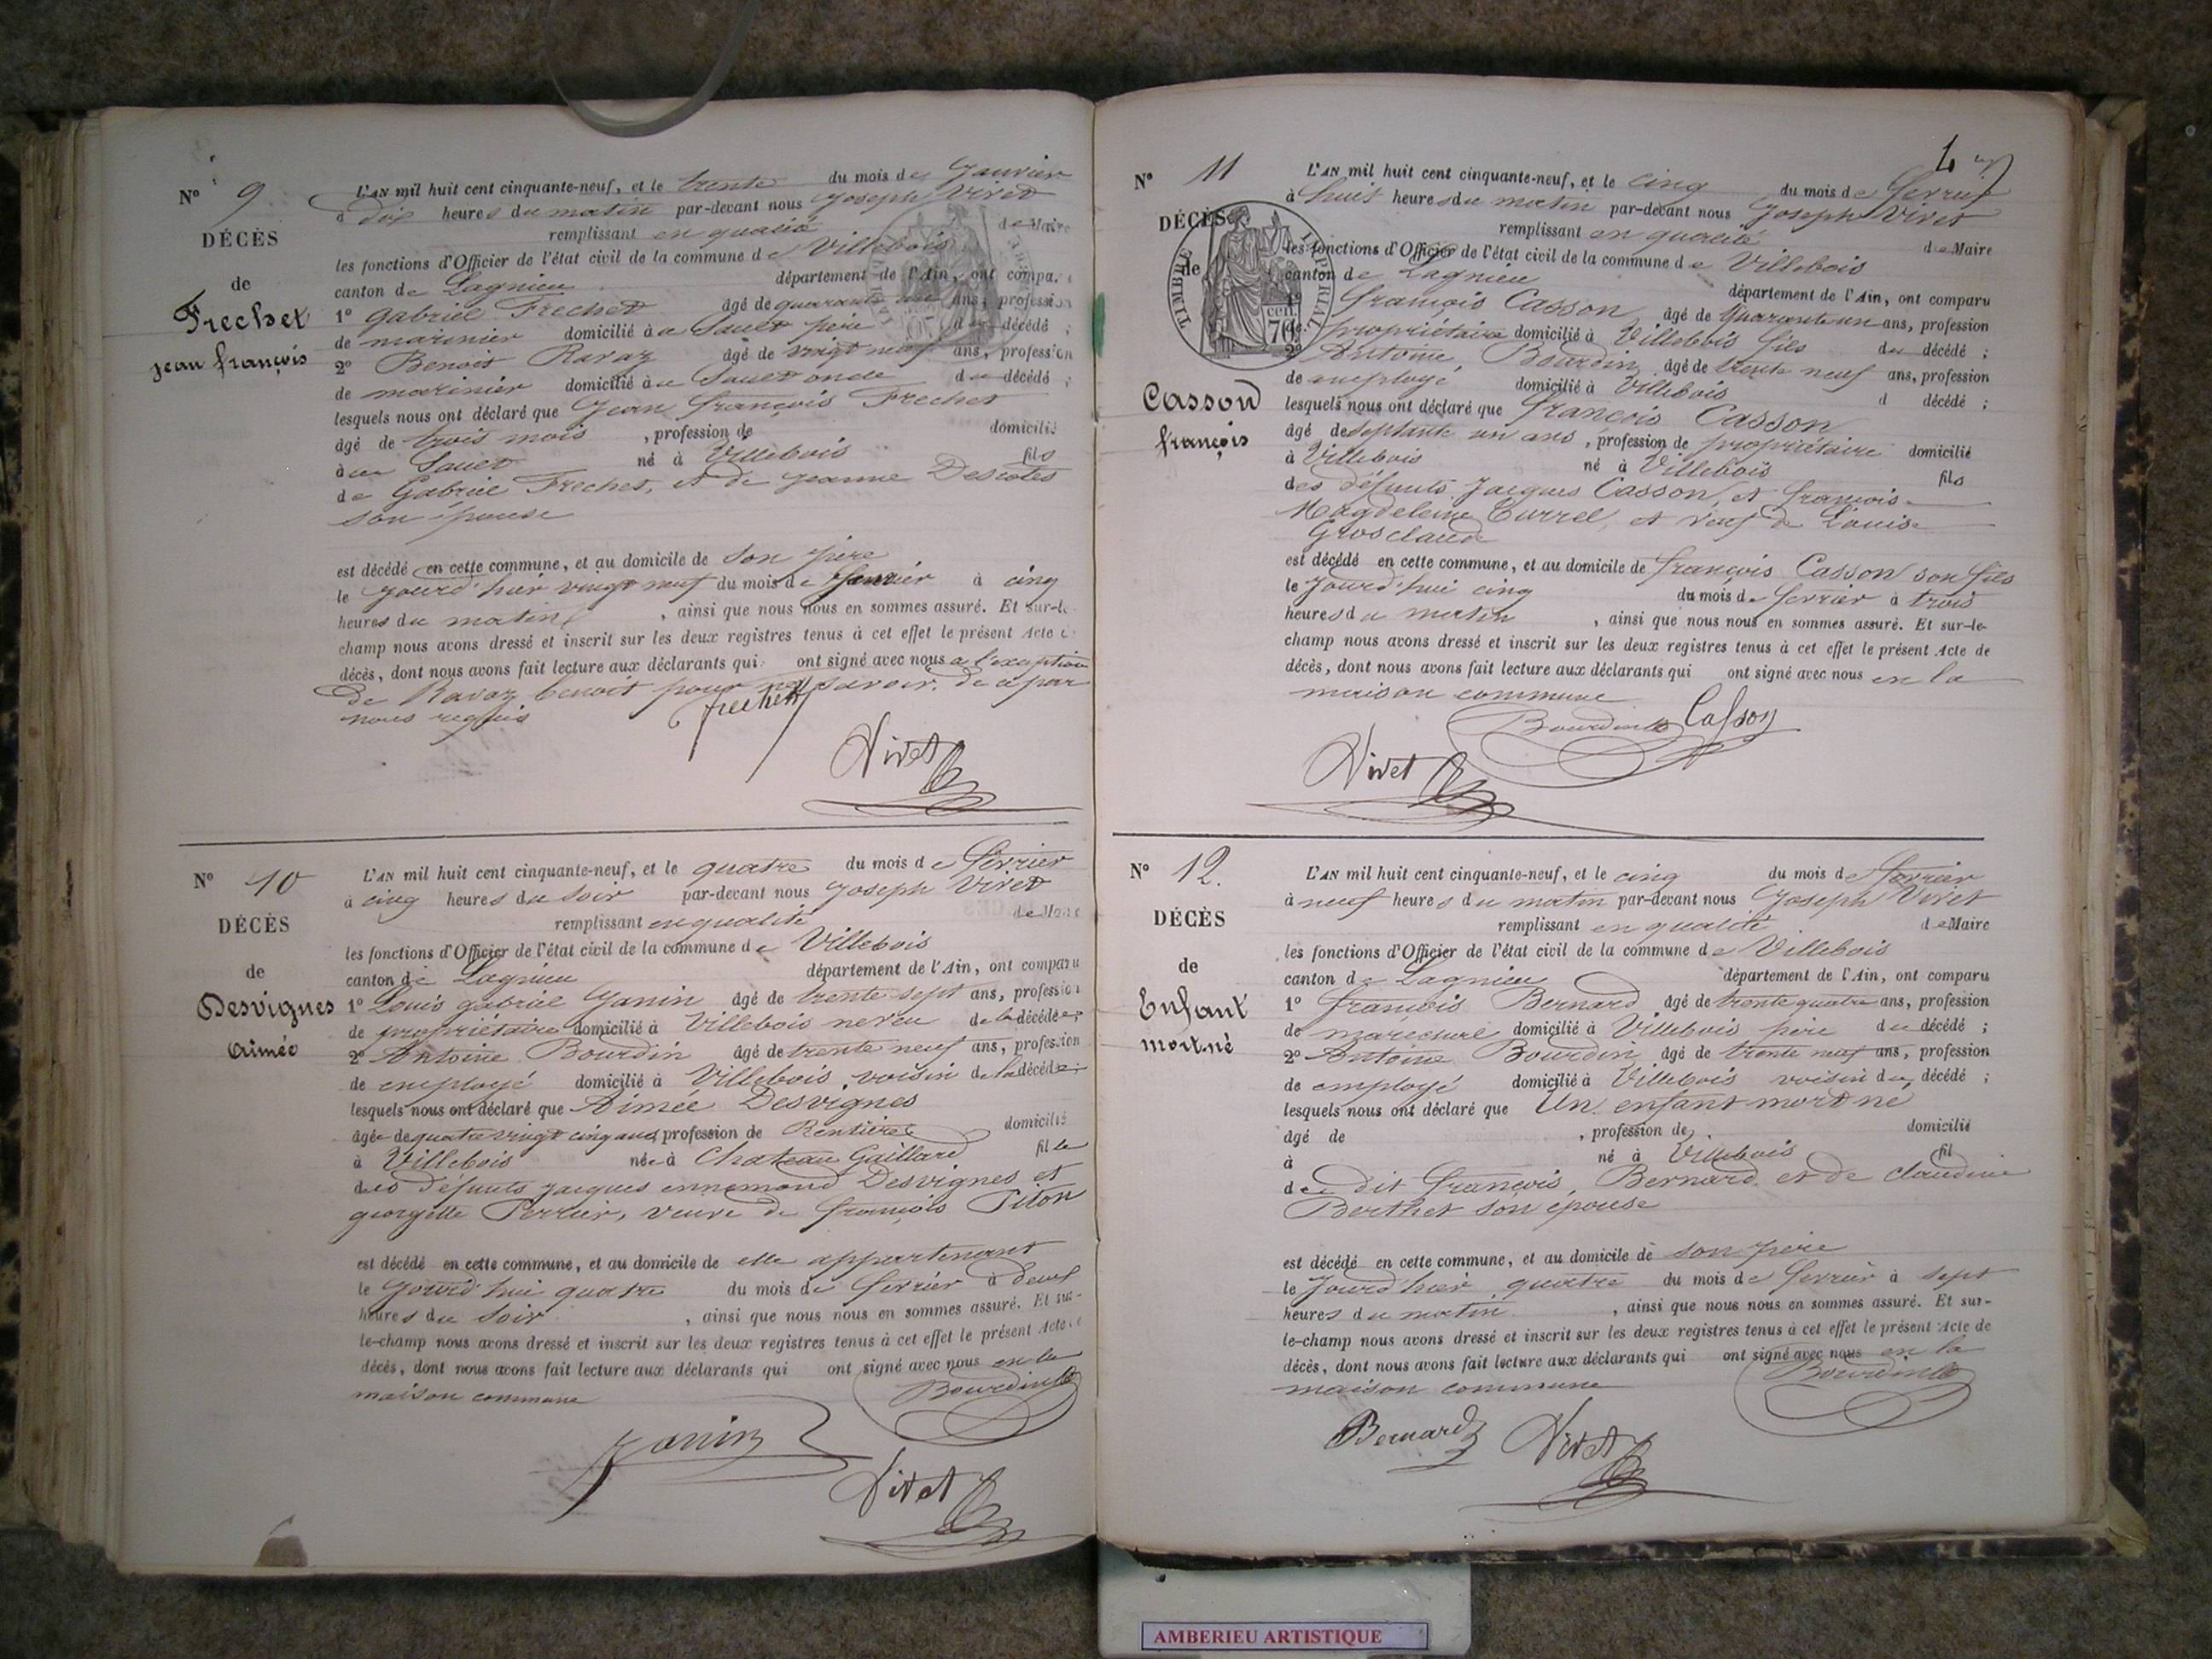 N° 9
DÉCÈS
de
Frechet
jean françois
L'AN mil huit cent cinquante-neuf, et le trente du mois de Janvier
à dix heures du matin par-devant nous Joseph Vivet
remplissant en qualité de Maire
les fonctions d'Officier de l'état civil de la commune de Villebois
canton de Lagnieu département de l'Ain, ont compa.
1° Gabriel Frechet âgé de quarante ans, profession
de marinier domicilié à Sault père du décédé ;
2° Benoit Ravaz âgé de vingt neuf ans, profession
de marinier domicilié à Sault oncle du décédé ;
lesquels nous ont déclaré que Jean françois Frechet
âgé de trois mois , profession de domicilié
à Sault né à Villebois fils
de Gabriel Frechet, et de jeanne Descotes
son épouse
est décédé en cette commune, et au domicile de son père
le jourd'hier vingt neuf du mois de Janvier à cinq
heures du matin , ainsi que nous nous en sommes assuré. Et sur-le
champ nous avons dressé et inscrit sur les deux registres tenus à cet effet le présent Acte
décès, dont nous avons fait lecture aux déclarants qui ont signé avec nous a l'exception
de Ravaz benoit pour ne savoir. de a par
nous requis
frechet
Vivet
N° 10
DÉCÈS
de
Desvignes
Aimée
L'AN mil huit cent cinquante-neuf, et le quatre du mois de fevrier
à cinq heures du soir par-devant nous Joseph Vivet
remplissant en qualité de Maire
les fonctions d'Officier de l'état civil de la commune de Villebois
canton de Lagnieu département de l'Ain, ont comparu
1° Louis gabriel Janin âgé de trente sept ans, profession
de propriétaire domicilié à Villebois neveu de la décédée ;
2° Antoine Bourdin âgé de trente neuf ans, profession
de employé domicilié à Villebois, voisin de la décédée ;
lesquels nous ont déclaré que Aimée Desvignes
âgée de quatre vingt cinq ans, profession de Rentière domicilié
à Villebois née à Chateau Gaillard fille
des défunts jacques ennemond Desvignes et
georgette Perrier, veuve de françois Piton
est décédé en cette commune, et au domicile de elle appartenant
le jourd'hui quatre du mois de fevrier à deux
heures du soir , ainsi que nous nous en sommes assuré. Et sur-
le-champ nous avons dressé et inscrit sur les deux registres tenus à cet effet le présent Acte de
décès, dont nous avons fait lecture aux déclarants qui ont signé avec nous en la
maison commune
Bourdin
Janin
Vivet
N° 11
DÉCÈS
de
Casson
françois
TIMBRE IMPÉRIAL
70 cen
L'AN mil huit cent cinquante-neuf, et le cinq du mois de fevrier
à huit heures du matin par-devant nous Joseph Vivet
remplissant en qualité de Maire
les fonctions d'Officier de l'état civil de la commune de Villebois
canton de Lagnieu département de l'Ain, ont comparu
1° françois Casson âgé de quarante un ans, profession
de propriétaire domicilié à Villebois fils du décédé ;
2° Antoine Bourdin âgé de trente neuf ans, profession
de employé domicilié à Villebois d décédé ;
lesquels nous ont déclaré que françois Casson
âgé de septante un ans , profession de propriétaire domicilié
à Villebois né à Villebois fils
des défunts Jacques Casson, et françoise
Magdeleine Currel, et veuf de Louise
Grosclaude
est décédé en cette commune, et au domicile de françois Casson son fils
le Jourd'hui cinq du mois de fevrier à trois
heures du matin , ainsi que nous nous en sommes assuré. Et sur-le-
champ nous avons dressé et inscrit sur les deux registres tenus à cet effet le présent Acte de
décès, dont nous avons fait lecture aux déclarants qui ont signé avec nous en la
maison commune
Bourdin Casson
Vivet
N° 12.
DÉCÈS
de
Enfant
mort né
L'AN mil huit cent cinquante-neuf, et le cinq du mois de fevrier
à neuf heures du matin par-devant nous Joseph Vivet
remplissant en qualité de Maire
les fonctions d'Officier de l'état civil de la commune de Villebois
canton de Lagnieu département de l'Ain, ont comparu
1° françois Bernard âgé de trente quatre ans, profession
de marechal domicilié à Villebois père du décédé ;
2° Antoine Bourdin âgé de trente neuf ans, profession
de employé domicilié à Villebois voisin du décédé ;
lesquels nous ont déclaré que Un enfant mort né
âgé de , profession de domicilié
à né à Villebois fil
du dit françois Bernard et de claudine
Berthet son épouse
est décédé en cette commune, et au domicile de son père
le Jourd'hier quatre du mois de fevrier à sept
heures du matin , ainsi que nous nous en sommes assuré. Et sur-
le-champ nous avons dressé et inscrit sur les deux registres tenus à cet effet le présent Acte de
décès, dont nous avons fait lecture aux déclarants qui ont signé avec nous en la
maison commune
Bourdin
Bernard Vivet
AMBERIEU ARTISTIQUE